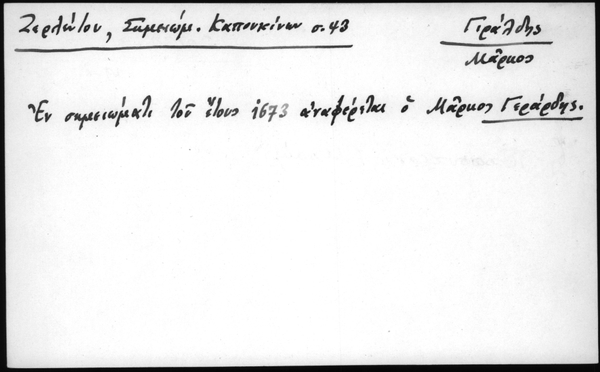 Ζερλέντου, Σημειώμ. Καπουκίνων σ. 43
Γιράλδης
Μᾶρκος
Ἐν σημειώματι τοῦ ἔτους 1673 ἀναφέρεται ὁ Μᾶρκος Γεράρδης.